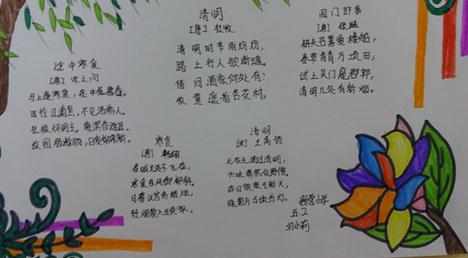 途中寒食
[唐] 宋之问
马上逢寒食，途中属暮春。
可怜江浦望，不见洛桥人。
北极怀明主，南溟作逐臣。
故园肠断处，日夜柳条新。
清明
[唐] 杜牧
清明时节雨纷纷，
路上行人欲断魂。
借问酒家何处有？
牧童遥指杏花村。
门即事
[唐] 张继
耕夫召募爱楼船，
春草青青万顷田；
试上吴门窥郡郭，
清明几处有新烟。
寒食
[唐] 韩翃
春城无处不飞花，
寒食东风御柳斜。
日暮汉宫传蜡烛，
轻烟散入五侯家。
清明
[宋] 王禹偁
无花无酒过清明，
兴味萧然似野僧。
昨日邻家乞新火，
晓窗分与读书灯。
营小学
五.2